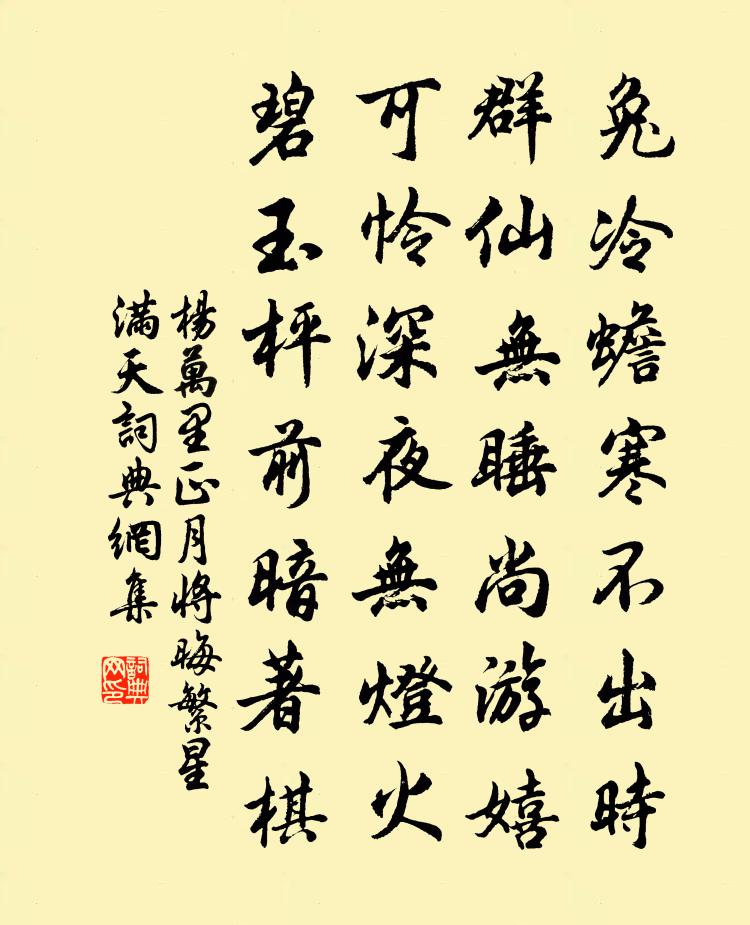 兔冷蟾寒不出時
群仙無睡尚游嬉
可怜深夜無燈火
碧玉枰前暗著棋
楊萬里正月將晦繁星
滿天詞典網集
詞典網印